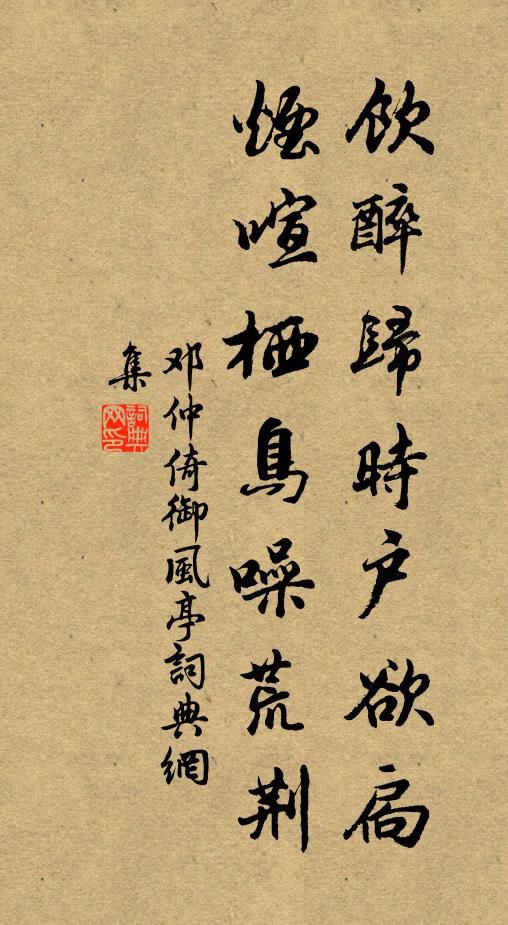 飲醉歸時戶欲扃
煙喧栖鳥噪荒荆
邓仲倚御風亭詞典網
集
詞典网印